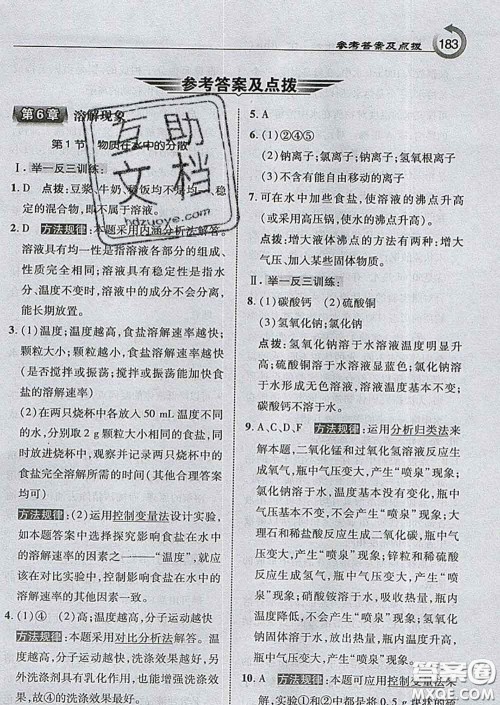 参考答案及点拨 183
参考答案及点拨
第6章 溶解现象
第1节 物质在水中的分散
Ⅰ.举一反三训练:
1.D 点拨:豆浆、牛奶、稀饭均不是均一、稳
定的混合物,即不属于溶液。
2.D 方法规律:本题采用内涵分析法解答。
溶液具有均一性是指溶液各部分的组
成、性质完全相同;溶液具有稳定性是指
水不蒸发、温度不变时溶液中的成分不会分离,
能长期放置。
3.(1)温度;温度越高,食盐溶解速率越快;
颗粒大小;颗粒越小,食盐溶解速率越
快;搅拌(或振荡);搅拌或振荡能加快食
盐的溶解速率)
(2)在两只烧杯中各放入 50 mL 温度不
同的水,分别取2 g颗粒大小相同的食盐,
同时放进烧杯中,观察并记录两只烧杯中的
食盐完全溶解所需的时间(其他合理答案
均可)
方法规律:(2)运用控制变量法设计实验,
如本题答案中选择探究影响食盐在水中
的溶解速率的因素之一——“温度”,就
应该使其他影响因素(颗粒大小、搅拌情
况等)完全相同,控制影响食盐在水中的
溶解速率的因素只有温度。
4.(1)①④ (2)高;分子运动越快
方法规律:本题采用对比分析法解答。温
度越高,分子运动越快,洗涤效果越好,洗
涤剂具有乳化作用,能使洗涤效果更好。
5.A
6.(1)①②④⑤
(2)钠离子;氯离子;钠离子;氢氧根离子
(3)不含有能自由移动的离子
7.可在水中加些食盐,使溶液的沸点升高
(或采用高压锅,使水的沸点升高)
点拨:增大液体沸点的方法有两种:增大
气压、加入某些固体物质。
Ⅱ.举一反三训练:
8.(1)碳酸钙 (2)硫酸铜
(3)氢氧化钠;氯化钠
点拨:氢氧化钠溶于水溶液温度明显升
高;硫酸铜溶于水溶液呈蓝色;氯化钠溶
于水溶液温度无明显变化,溶液呈无色;
碳酸钙不溶于水。
9.A、C、D、F 方法规律:运用分析归类法来
解本题,二氧化锰和过氧化氢溶液反应生
成氧气,瓶中气压变大,产生“喷泉”现象;
氯化钠溶于水,温度基本没有变化,瓶中
气压不变,不会产生“喷泉”现象;氢氧化
钠固体溶于水放热,瓶内温度升高,瓶中
气压变大,产生“喷泉”现象;大
理石和稀盐酸反应生成二氧化碳,瓶中气
压变大,产生“喷泉”现象;锌粒和稀硫酸
反应生成氢气,瓶中气压变大,产生“喷
泉”现象;硝酸铵固体溶于水吸热,瓶内
温度降低,瓶中气压变小,不会产生“喷
泉”现象;生石灰与水反应放热,瓶内温
度升高,瓶中气压变大,产生“喷泉”
现象。
互助文档
hdzuoye.com
答案圈
MXQE.COM